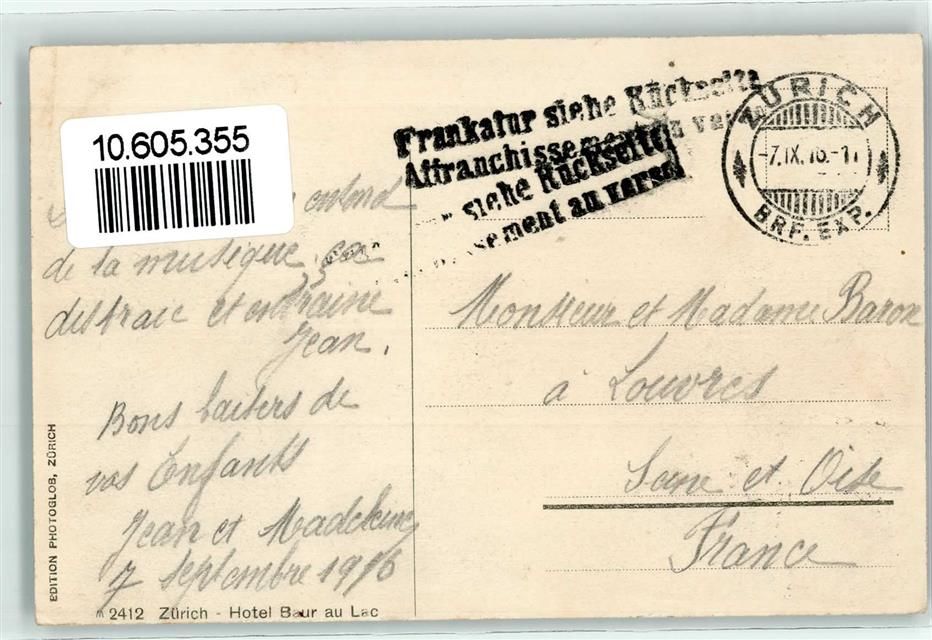 10.605.355
entend
de la musique, ca
distraie et entraine
Jean.
Bons baisers de
vos Enfants
Jean et Madeleine
7 septembre 1916
EDITION PHOTOGLOB, ZÜRICH
2412 Zürich - Hotel Baur au Lac
Frankatur siehe Rückseite
Affranchissement
siehe Rückseite
sement au verso
ZÜRICH
-7.IX.16.-11
BRF. EXP.
Monsieur et Madame Baron
à Louvres
Seine et Oise
France